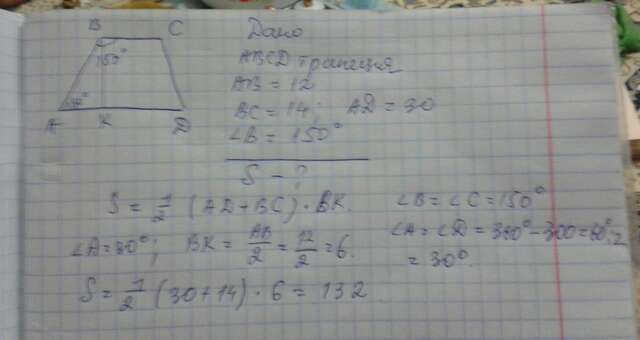 B C
150°
30°
A K D
Дано
ABCD трапеция
AB = 12
BC = 14; AD = 30
∠B = 150°
S - ?
S = 1/2 (AD + BC) · BK.
∠B = ∠C = 150°
∠A = 30°; BK = AB/2 = 12/2 = 6.
∠A = ∠D = 360° - 300 = 60°:2
= 30°.
S = 1/2 (30 + 14) · 6 = 132